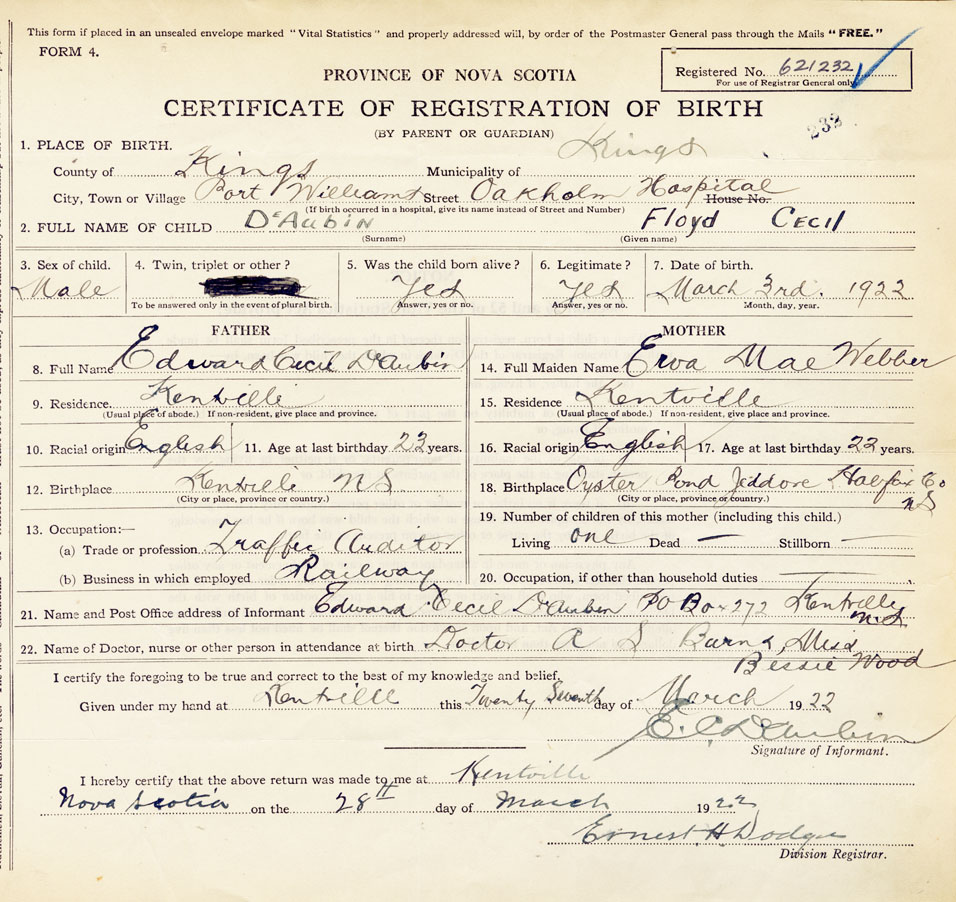 This form if placed in an unsealed envelope marked "Vital Statistics" and properly addressed will, by order of the Postmaster General pass through the Mails "FREE."
FORM 4.
Registered No. 621232
For use of Registrar General only
PROVINCE OF NOVA SCOTIA
CERTIFICATE OF REGISTRATION OF BIRTH
232
(BY PARENT OR GUARDIAN)
1. PLACE OF BIRTH.
County of Kings Municipality of Kings
City, Town or Village Port Williams Street Oakholm Hospital House No.
(If birth occurred in a hospital, give its name instead of Street and Number)
2. FULL NAME OF CHILD D'Aubin Floyd Cecil
(Surname) (Given name)
3. Sex of child. 4. Twin, triplet or other? 5. Was the child born alive? 6. Legitimate? 7. Date of birth.
Male Yes Yes March 3rd. 1922
To be answered only in the event of plural birth. Answer, yes or no. Answer, yes or no. Month, day, year.
FATHER
8. Full Name Edward Cecil D'Aubin
9. Residence. Kentville
(Usual place of abode.) If non-resident, give place and province.
10. Racial origin English 11. Age at last birthday 23 years.
12. Birthplace Kentville N S
(City or place, province or country.)
13. Occupation:—
(a) Trade or profession Traffic Auditor
(b) Business in which employed Railway
MOTHER
14. Full Maiden Name Erva Mae Webber
15. Residence Kentville
(Usual place of abode.) If non-resident, give place and province.
16. Racial origin English 17. Age at last birthday 22 years.
18. Birthplace Oyster Pond Jeddore Halfax Co
N S
(City or place, province or country.)
19. Number of children of this mother (including this child.)
Living one Dead — Stillborn —
20. Occupation, if other than household duties —
21. Name and Post Office address of Informant Edward Cecil D'Aubin P O Box 272 Kentville
N.S
22. Name of Doctor, nurse or other person in attendance at birth Doctor A S Burns, Miss
Bessie Wood
I certify the foregoing to be true and correct to the best of my knowledge and belief,
Given under my hand at Kentville this Twenty Seventh day of March 1922
E. C. D'Aubin
Signature of Informant.
I hereby certify that the above return was made to me at Kentville
Nova Scotia on the 28th day of March 1922
Ernest H. Dodge
Division Registrar.